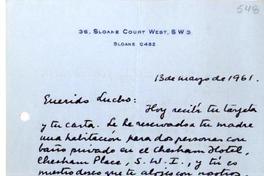 548
36, SLOANE COURT WEST, S W 3.
SLOANE 0482
13 de mayo de 1961.
Querido Lucho: Hoy recibí tu tarjeta
y tu carta. Le he reservado a tu madre
una habitación para dos personas con
baño privado en el Chesham Hotel,
Chesham Place, S. W. I., y tú es
nuestro deseo que te alojes con nosotros.